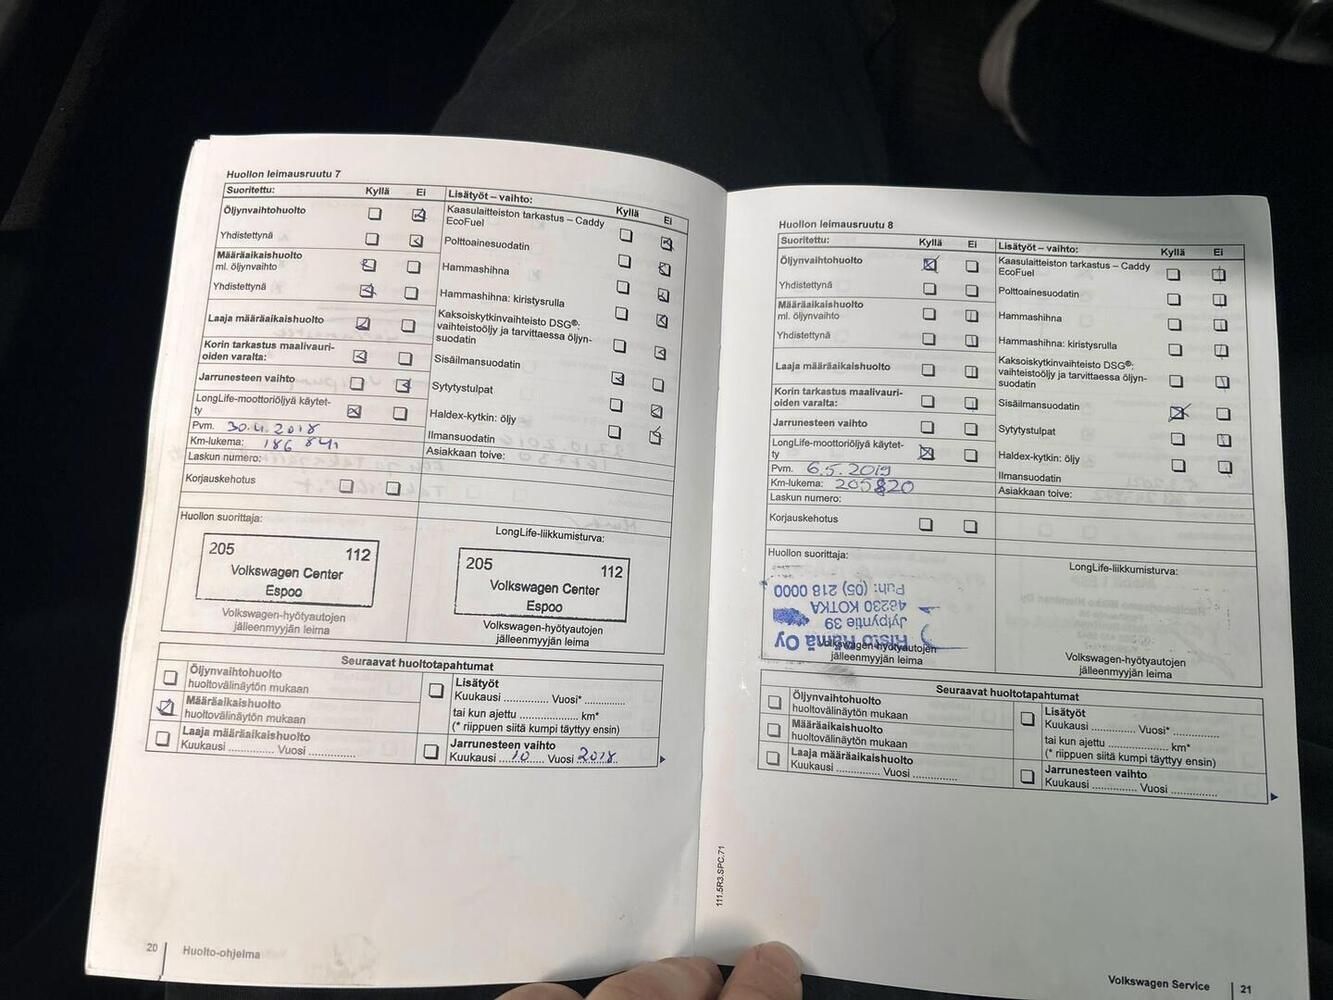 Huollon leimausruutu 7
Suoritettu: Kyllä Ei
Öljynvaihtohuolto
Yhdistettynä
Määräaikaishuolto
ml. öljynvaihto
Yhdistettynä
Laaja määräaikaishuolto
Korin tarkastus maalivauri-
oiden varalta:
Jarrunesteen vaihto
LongLife-moottoriöljyä käytet-
ty
Pvm. 30.4.2018
Km-lukema: 186 841
Laskun numero:
Korjauskehotus
Huollon suorittaja:
205 112
Volkswagen Center
Espoo
Volkswagen-hyötyautojen
jälleenmyyjän leima
Lisätyöt – vaihto: Kyllä Ei
Kaasulaitteiston tarkastus – Caddy
EcoFuel
Polttoainesuodatin
Hammashihna
Hammashihna: kiristysrulla
Kaksoiskytkinvaihteisto DSG®:
vaihteistoöljy ja tarvittaessa öljyn-
suodatin
Sisäilmansuodatin
Sytytystulpat
Haldex-kytkin: öljy
Ilmansuodatin
Asiakkaan toive:
LongLife-liikkumisturva:
205 112
Volkswagen Center
Espoo
Volkswagen-hyötyautojen
jälleenmyyjän leima
Seuraavat huoltotapahtumat
Öljynvaihtohuolto
huoltovälinäytön mukaan
Määräaikaishuolto
huoltovälinäytön mukaan
Laaja määräaikaishuolto
Kuukausi .............. Vuosi ..............
Lisätyöt
Kuukausi .............. Vuosi* ..............
tai kun ajettu .................... km*
(* riippuen siitä kumpi täyttyy ensin)
Jarrunesteen vaihto
Kuukausi 10 Vuosi 2018
20 Huolto-ohjelma
Huollon leimausruutu 8
Suoritettu: Kyllä Ei
Öljynvaihtohuolto
Yhdistettynä
Määräaikaishuolto
ml. öljynvaihto
Yhdistettynä
Laaja määräaikaishuolto
Korin tarkastus maalivauri-
oiden varalta:
Jarrunesteen vaihto
LongLife-moottoriöljyä käytet-
ty
Pvm. 6.5.2019
Km-lukema: 205820
Laskun numero:
Korjauskehotus
Huollon suorittaja:
Risto Hämä Oy
Jylpyntie 39
48230 KOTKA
Puh: (05) 218 0000
Volkswagen-hyötyautojen
jälleenmyyjän leima
Lisätyöt – vaihto: Kyllä Ei
Kaasulaitteiston tarkastus – Caddy
EcoFuel
Polttoainesuodatin
Hammashihna
Hammashihna: kiristysrulla
Kaksoiskytkinvaihteisto DSG®:
vaihteistoöljy ja tarvittaessa öljyn-
suodatin
Sisäilmansuodatin
Sytytystulpat
Haldex-kytkin: öljy
Ilmansuodatin
Asiakkaan toive:
LongLife-liikkumisturva:
Volkswagen-hyötyautojen
jälleenmyyjän leima
Seuraavat huoltotapahtumat
Öljynvaihtohuolto
huoltovälinäytön mukaan
Määräaikaishuolto
huoltovälinäytön mukaan
Laaja määräaikaishuolto
Kuukausi .............. Vuosi ..............
Lisätyöt
Kuukausi .............. Vuosi* ..............
tai kun ajettu .................... km*
(* riippuen siitä kumpi täyttyy ensin)
Jarrunesteen vaihto
Kuukausi .............. Vuosi ..............
111.5R3.SPC.71
Volkswagen Service 21